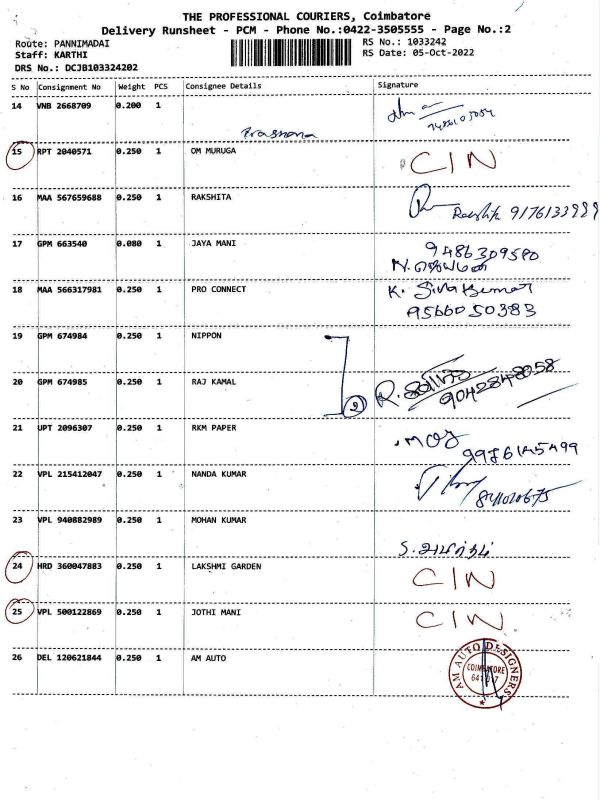 THE PROFESSIONAL COURIERS, Coimbatore
Delivery Runsheet - PCM - Phone No.:0422-3505555 - Page No.:2
Route: PANNIMADAI
Staff: KARTHI
DRS No.: DCJB103324202
RS No.: 1033242
RS Date: 05-Oct-2022
S No Consignment No Weight PCS Consignee Details Signature
14 VNB 2668709 0.200 1
Prasanna
15 RPT 2040571 0.250 1 OM MURUGA CIN
16 MAA 567659688 0.250 1 RAKSHITA
17 GPM 663540 0.080 1 JAYA MANI 9486309580
18 MAA 566317981 0.250 1 PRO CONNECT K. Siva Kumar
9566050383
19 GPM 674984 0.250 1 NIPPON
20 GPM 674985 0.250 1 RAJ KAMAL 2 9042848058
21 UPT 2096307 0.250 1 RKM PAPER
22 VPL 215412047 0.250 1 NANDA KUMAR
23 VPL 940882989 0.250 1 MOHAN KUMAR
24 HRD 360047883 0.250 1 LAKSHMI GARDEN CIN
25 VPL 500122869 0.250 1 JOTHI MANI CIN
26 DEL 120621844 0.250 1 AM AUTO
AM AUTO DESIGNERS